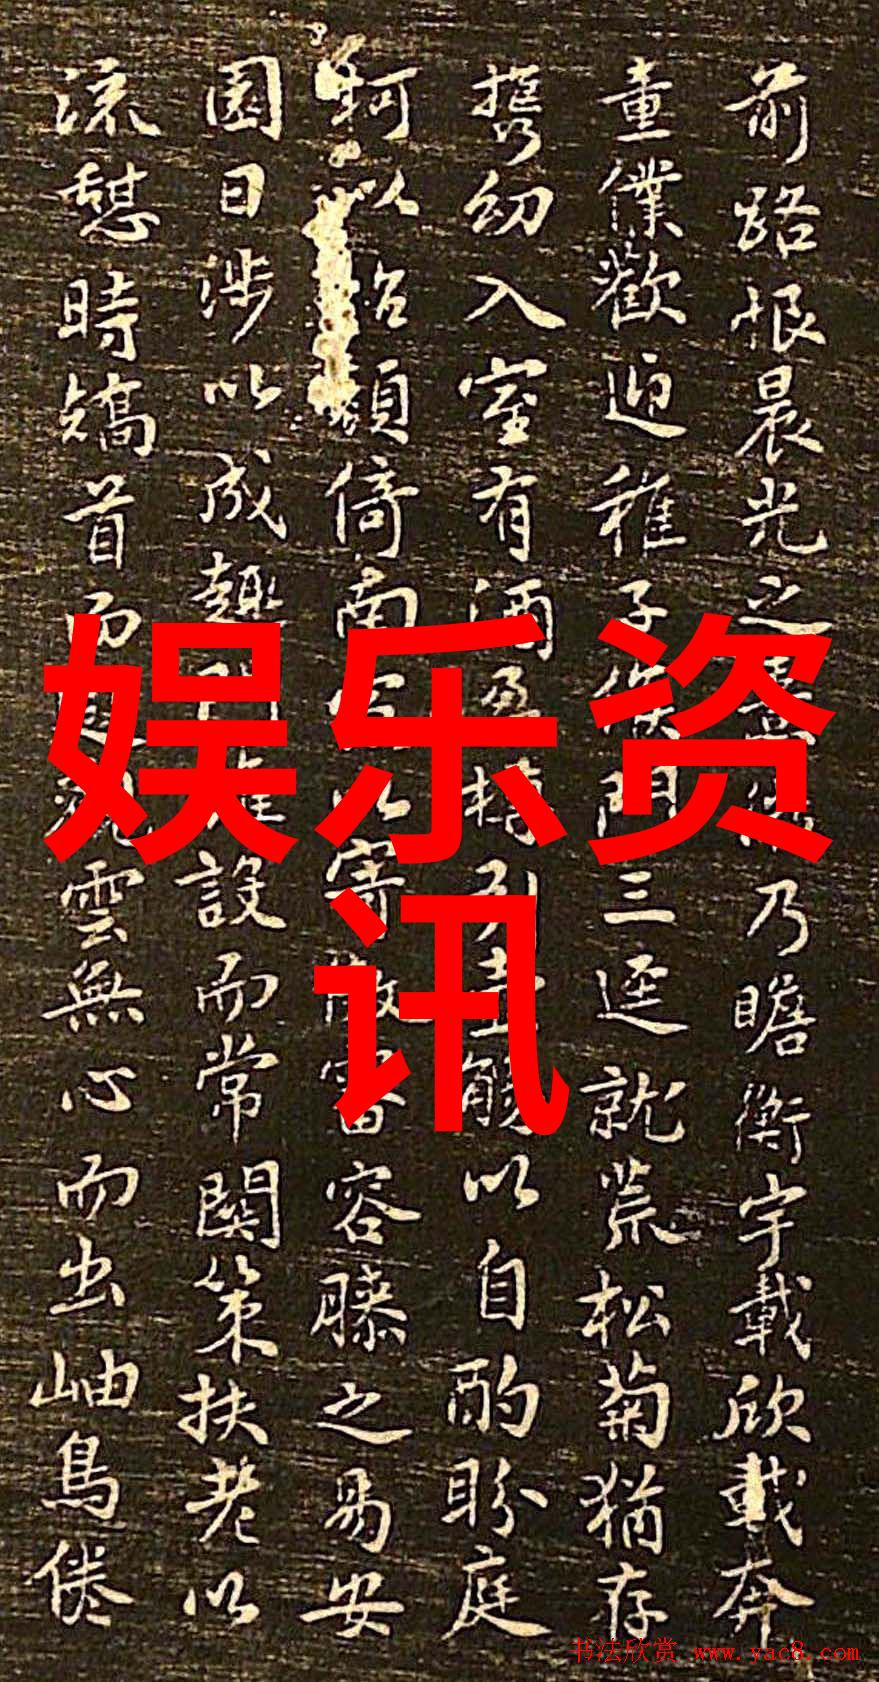 前路恨晨光之熹乃瞻衡宇載欣載奔
童僕歡迎稚子候門三逕就荒松菊猶存
携幼入室有酒盈樽引壺觴以自酌眄庭
柯以怡顏倚南以寄傲審容膝之易安
園日涉以成趣門雖設而常關策扶老以
流憩時矯首而遐觀雲無心而出岫鳥倦
娱乐资
讯
书法欣赏 www.yac8.com